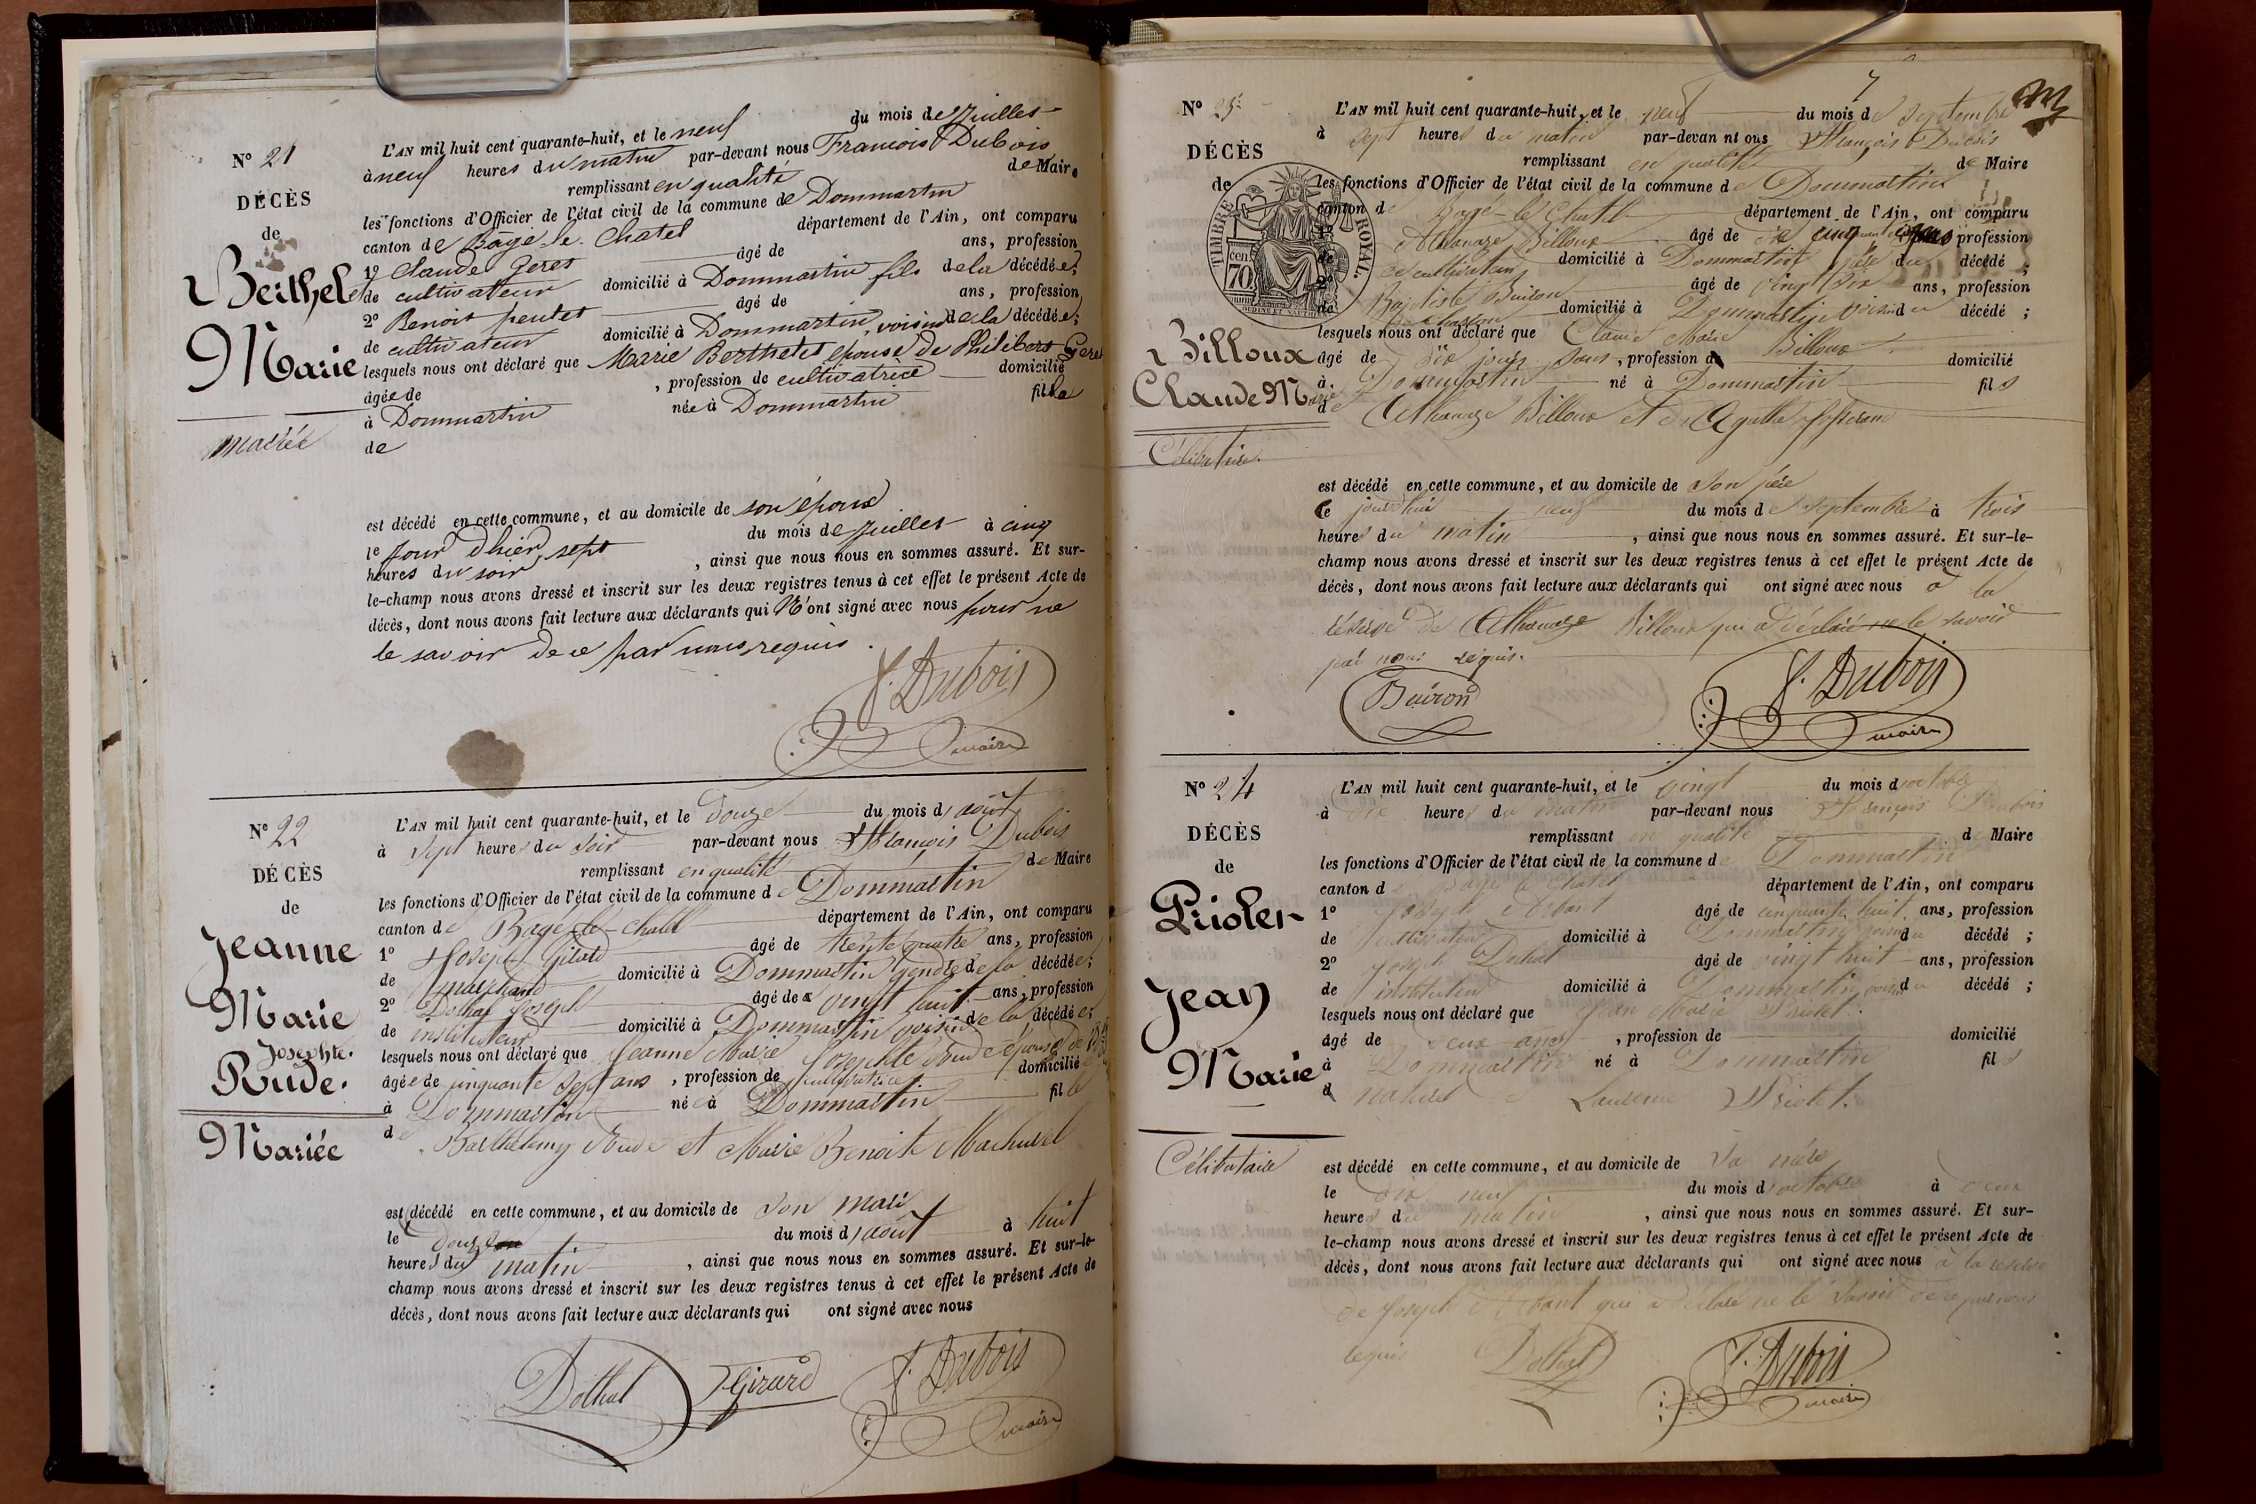 N° 21
DÉCÈS
de
Berthelet
Marie
mariée
L'AN mil huit cent quarante-huit, et le neuf du mois de Juillet
à neuf heures du matin par-devant nous François Dubois
remplissant en qualité de Maire
les fonctions d'Officier de l'état civil de la commune de Dommartin
canton de Bâgé-le-Chatel département de l'Ain, ont comparu
1° Claude Geres âgé de ans, profession
de cultivateur domicilié à Dommartin fils de la décédée;
2° Benoit pentet âgé de ans, profession
de cultivateur domicilié à Dommartin, voisin de la décédée;
lesquels nous ont déclaré que Marie Berthelet épouse de Philibert Geres
âgée de , profession de cultivatrice domicilié
à Dommartin née à Dommartin fille
de
est décédé en cette commune, et au domicile de son époux
le jour d'hier sept du mois de Juillet à cinq
heures du soir , ainsi que nous nous en sommes assuré. Et sur-
le-champ nous avons dressé et inscrit sur les deux registres tenus à cet effet le présent Acte de
décès, dont nous avons fait lecture aux déclarants qui N'ont signé avec nous pour ne
le savoir de ce par nous requis.
f. Dubois
maire
N° 22
DÉCÈS
de
Jeanne
Marie
Josephte.
Rude.
Mariée
L'AN mil huit cent quarante-huit, et le Douze du mois d'août
à sept heures du soir par-devant nous François Dubois
remplissant en qualité de Maire
les fonctions d'Officier de l'état civil de la commune de Dommartin
canton de Bagé-le-chatel département de l'Ain, ont comparu
1° Joseph Girard âgé de trente quatre ans, profession
de marchand domicilié à Dommartin gendre de la décédée;
2° Dolhat Joseph âgé de vingt huit ans, profession
de instituteur domicilié à Dommartin voisin de la décédée;
lesquels nous ont déclaré que Jeanne Marie Josephte Rude épouse de
âgée de cinquante sept ans, profession de cultivatrice domicilié
à Dommartin née à Dommartin fille
de Barthelemy Rude et Marie Benoite Machurel
est décédé en cette commune, et au domicile de son mari
le douze du mois d'août à huit
heures du matin , ainsi que nous nous en sommes assuré. Et sur-le-
champ nous avons dressé et inscrit sur les deux registres tenus à cet effet le présent Acte de
décès, dont nous avons fait lecture aux déclarants qui ont signé avec nous
Dolhat JGirard f. Dubois
maire
7
N° 23
DÉCÈS
de
TIMBRE ROYAL.
70 cen
Billoux
Claude Marie
Célibataire.
L'AN mil huit cent quarante-huit, et le neuf du mois de septembre
à sept heures du matin par-devant nous François Dubois
remplissant en qualité de Maire
les fonctions d'Officier de l'état civil de la commune de Dommartin
canton de Bagé-le-Chatel département de l'Ain, ont comparu
Athanaze Billoux âgé de ans, profession
de cultivateur domicilié à Dommartin père du décédé ;
2° Baptiste Buiron âgé de vingt six ans, profession
de domicilié à Dommartin voisin du décédé ;
lesquels nous ont déclaré que Claude Marie Billoux
âgé de dix jours , profession de domicilié
à Dommartin né à Dommartin fils
de Athanaze Billoux et de Agathe
est décédé en cette commune, et au domicile de son père
le jourd'hui neuf du mois de septembre à trois
heures du matin , ainsi que nous nous en sommes assuré. Et sur-le-
champ nous avons dressé et inscrit sur les deux registres tenus à cet effet le présent Acte de
décès, dont nous avons fait lecture aux déclarants qui ont signé avec nous à la
réserve de Athanaze Billoux qui a déclaré ne le savoir
par nous requis.
Buiron f. Dubois
maire
N° 24
DÉCÈS
de
Priolet
Jean
Marie
Célibataire
L'AN mil huit cent quarante-huit, et le vingt du mois d'octobre
à dix heures du matin par-devant nous François Dubois
remplissant en qualité de Maire
les fonctions d'Officier de l'état civil de la commune de Dommartin
canton de Bagé le Chatel département de l'Ain, ont comparu
1° Joseph âgé de cinquante huit ans, profession
de cultivateur domicilié à Dommartin voisin du décédé ;
2° Joseph Dolhat âgé de vingt huit ans, profession
de instituteur domicilié à Dommartin voisin du décédé ;
lesquels nous ont déclaré que Jean Marie Priolet.
âgé de deux ans , profession de domicilié
à Dommartin né à Dommartin fils
naturel de Laurence Priolet.
est décédé en cette commune, et au domicile de sa mère
le dix neuf du mois d'octobre à deux
heures du matin , ainsi que nous nous en sommes assuré. Et sur-
le-champ nous avons dressé et inscrit sur les deux registres tenus à cet effet le présent Acte de
décès, dont nous avons fait lecture aux déclarants qui ont signé avec nous à la réserve
de Joseph qui a déclaré ne le savoir de ce par nous
requis Dolhat f. Dubois
maire